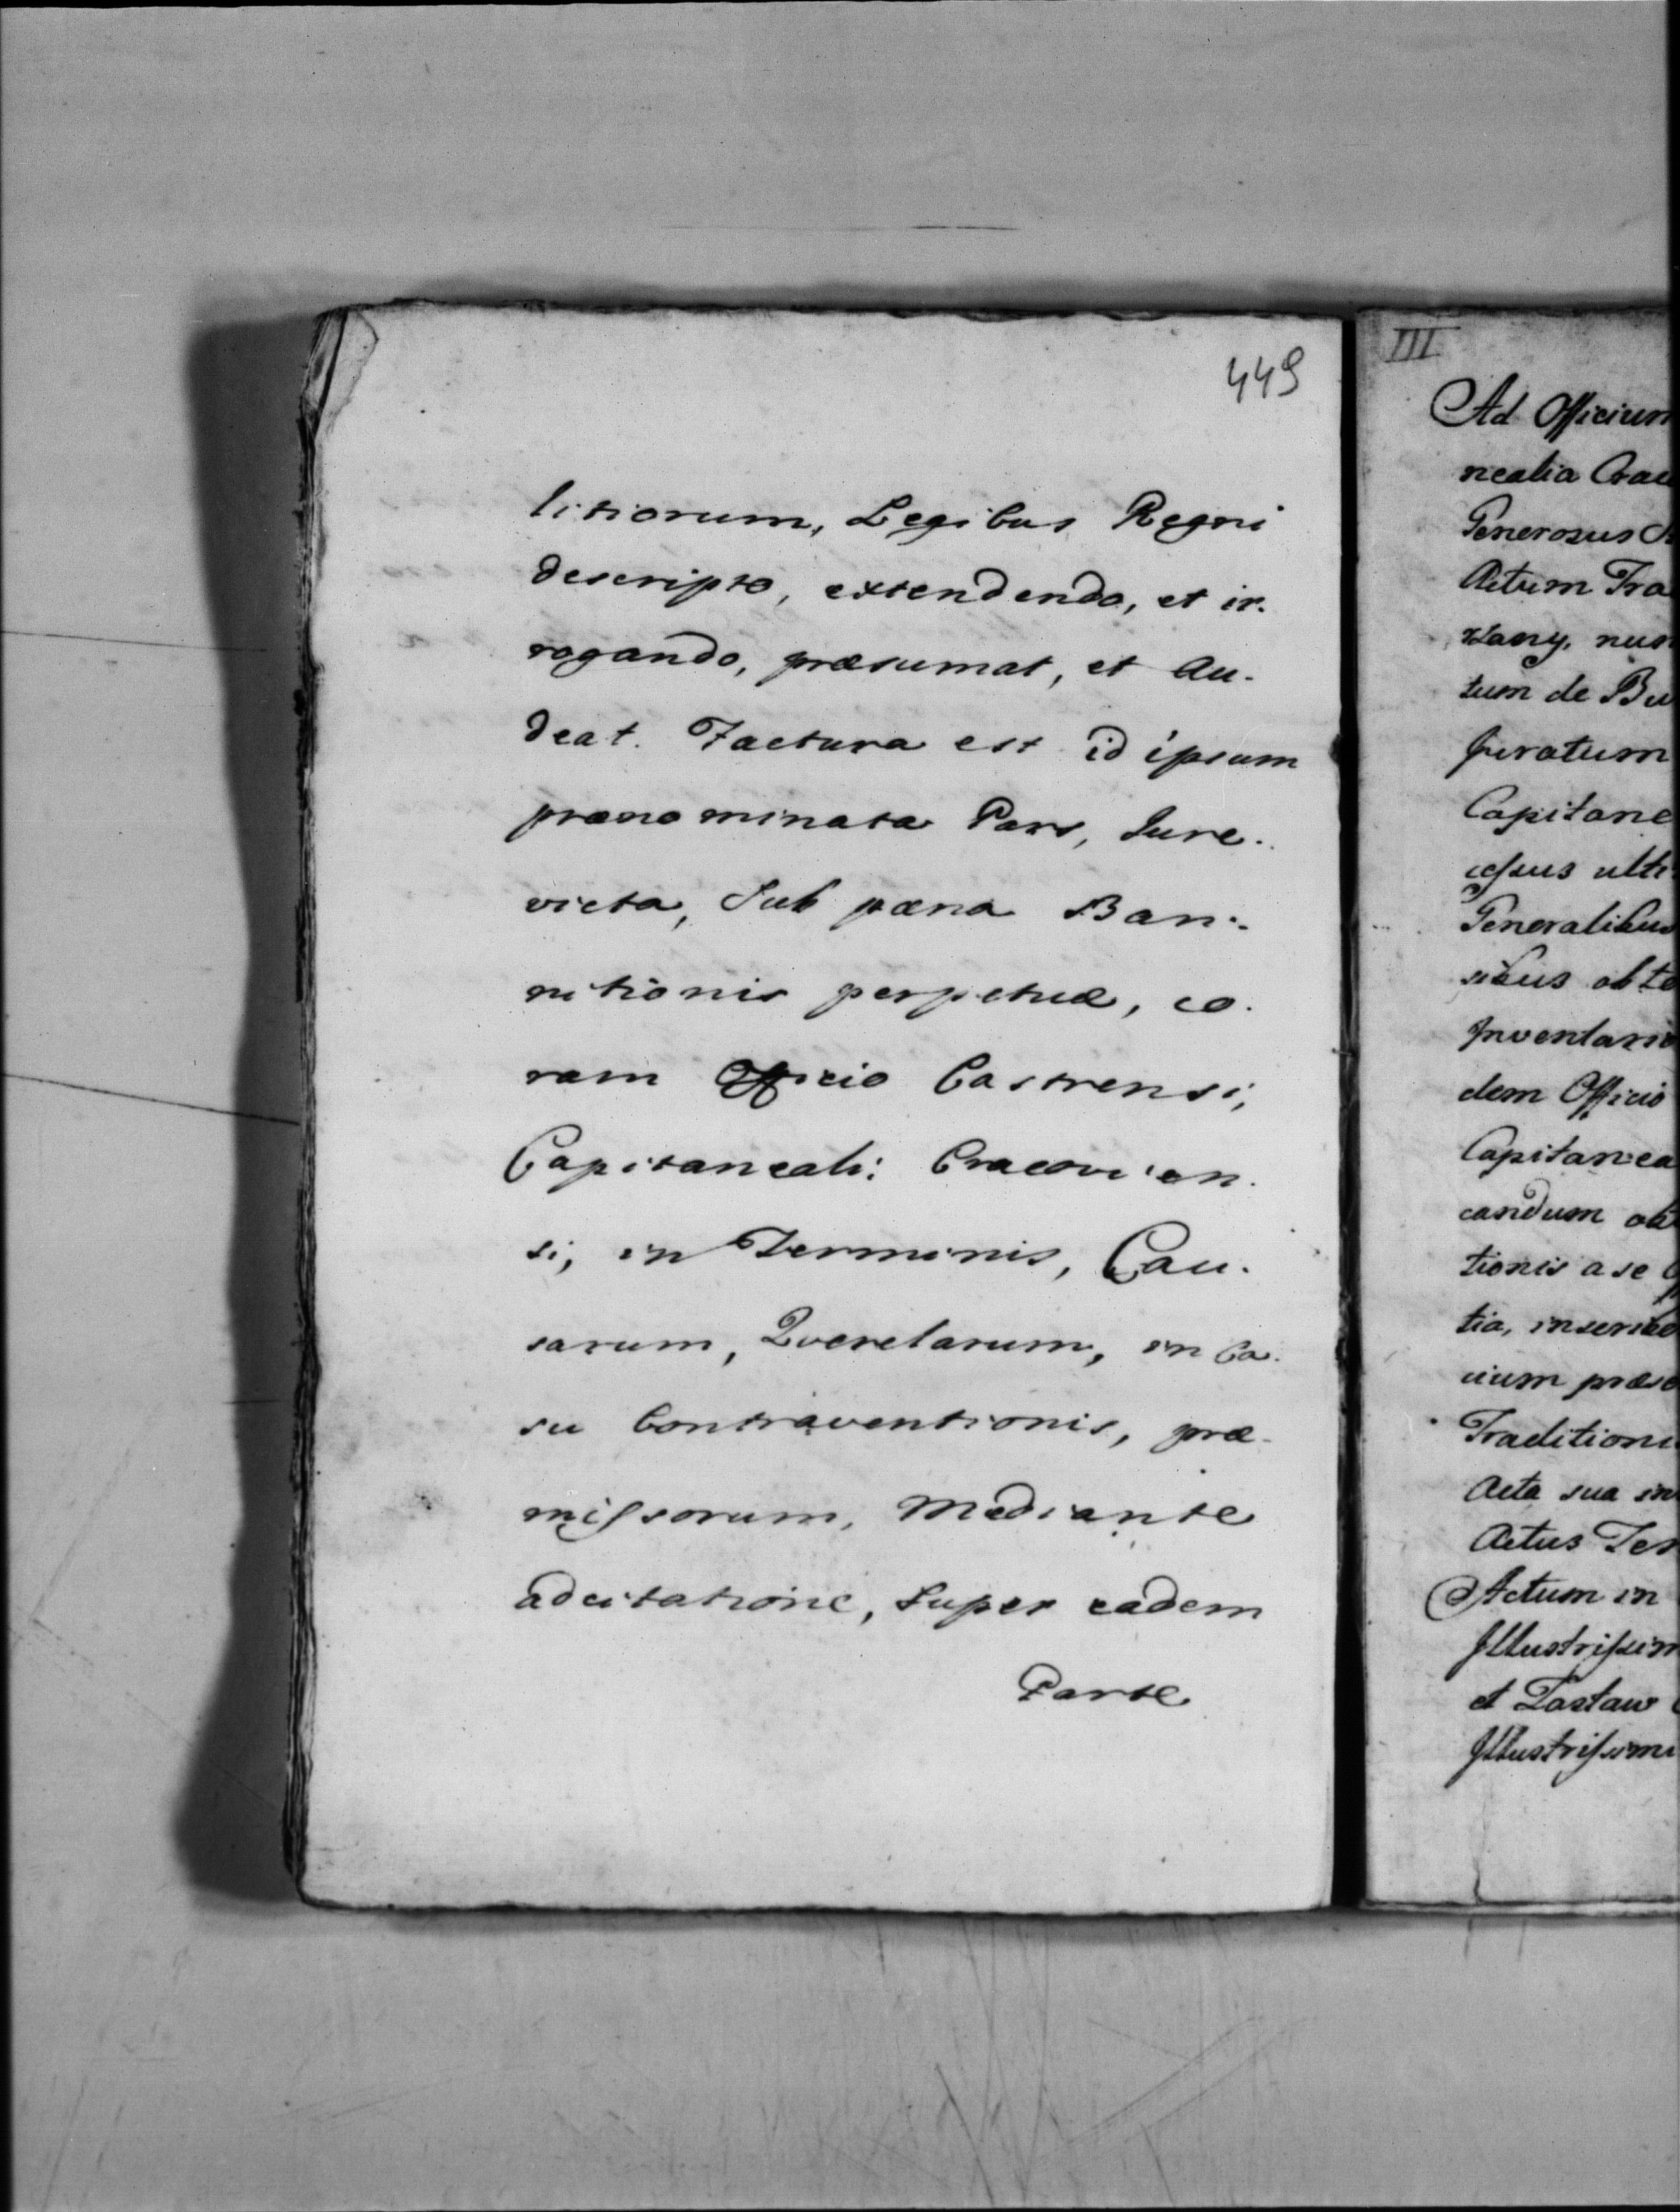 449
litiorum, Legibus Regni
descripto, extendendo, et ir.
rogando, præsumat, et au.
deat. Factura est id ipsum
prænominata Pars, Jure.
victa, Sub pæna Ban:
nitionis perpetuæ, co.
ram Officio Castrensi,
Capitaneali: Cracovien.
si, in Terminis, Cau.
sarum, Querelarum, in Ca.
su Contraventionis, præ.
missorum, Mediante
adcitatione, Super eadem
Parte
III
Ad Officium
nealia Crac
Generosus
Actum Tra
tum de Bu
Juratum
Capitane
Generalibus
sibus obte
Inventario
dem Officio
Capitanea
candum ob
tionis a se
tia, inscribe
cium præse
Traditioni
Acta sua in
Actus Ter
Actum in
Illustrissim
et Zastaw
Illustrissimi